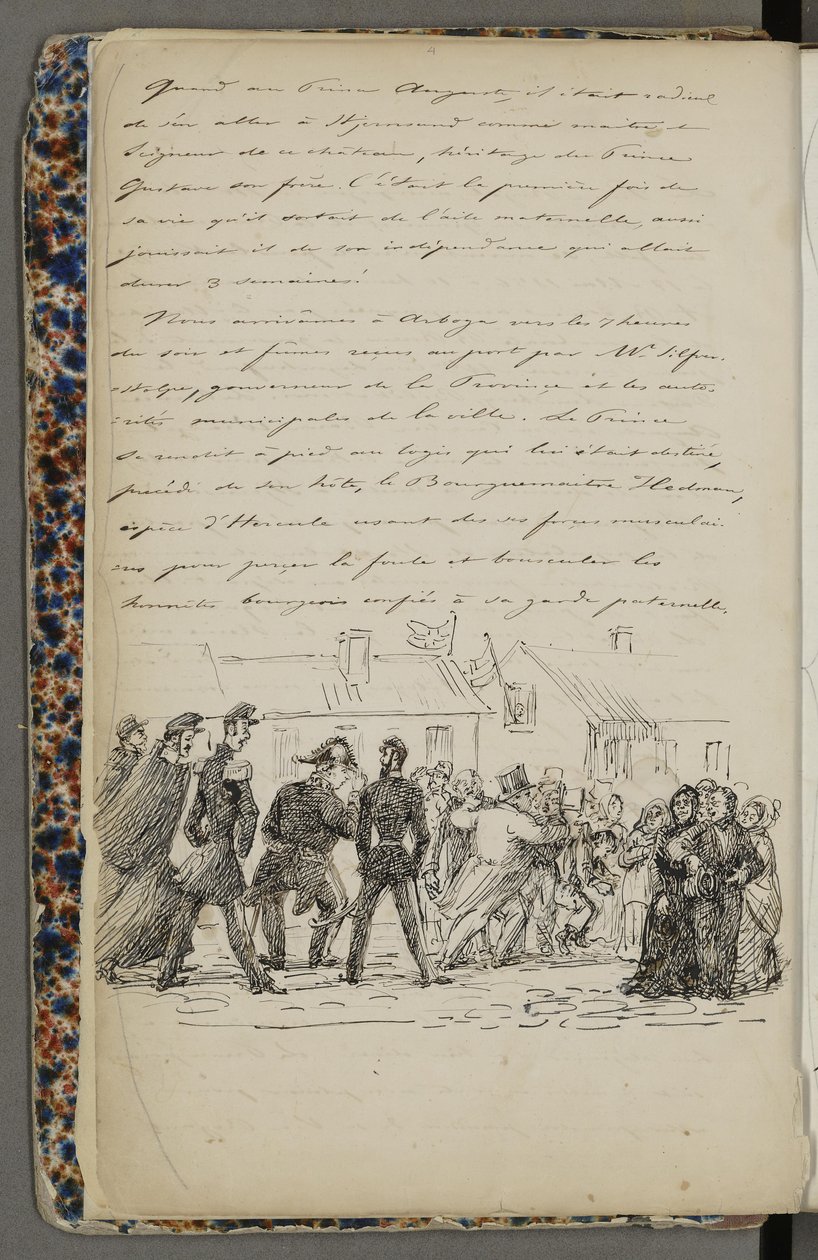 4
Quand au Prince Auguste, il était radieux
de s'en aller à Stjernsund comme maitre et
Seigneur de ce château, héritage du Prince
Gustave son frère. C'était la première fois de
sa vie qu'il sortait de l'aile maternelle, aussi
jouissait il de son indépendance qui allait
durer 3 semaines!
Nous arrivâmes à Arboga vers les 7 heures
du soir et fûmes reçus au port par Mr. Silfver-
=stolpe, gouverneur de la Province et les auto-
=rités municipales de la ville. Le Prince
se rendit à pied au logis qui lui était destiné,
précédé de son hôte, le Bourguemaitre Hedman,
espèce d'Hercule usant des ses forçes musculai-
=res pour perçer la foule et bousculer les
honnêtes bourgeois confiés à sa garde paternelle.